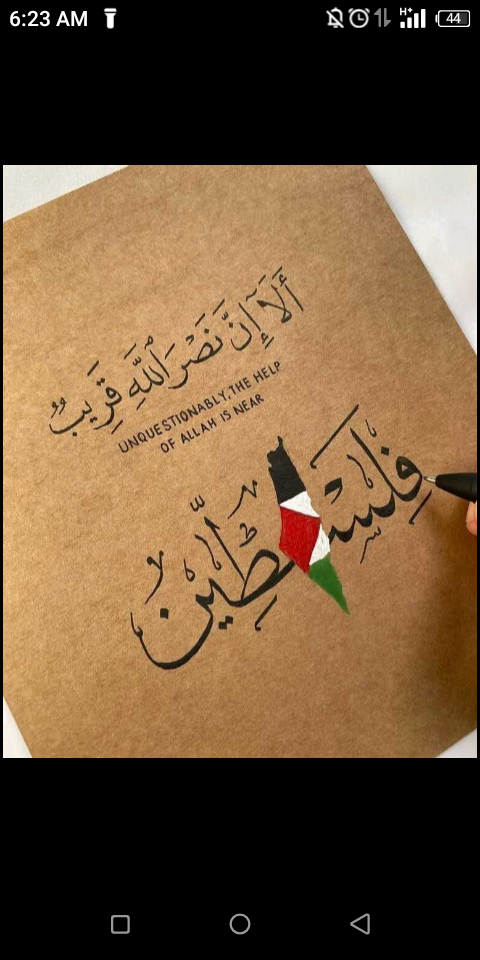 6:23 AM
H+
44
أَلَآ إِنَّ نَصْرَ ٱللَّهِ قَرِيبٌ
UNQUESTIONABLY, THE HELP
OF ALLAH IS NEAR
فلسطين